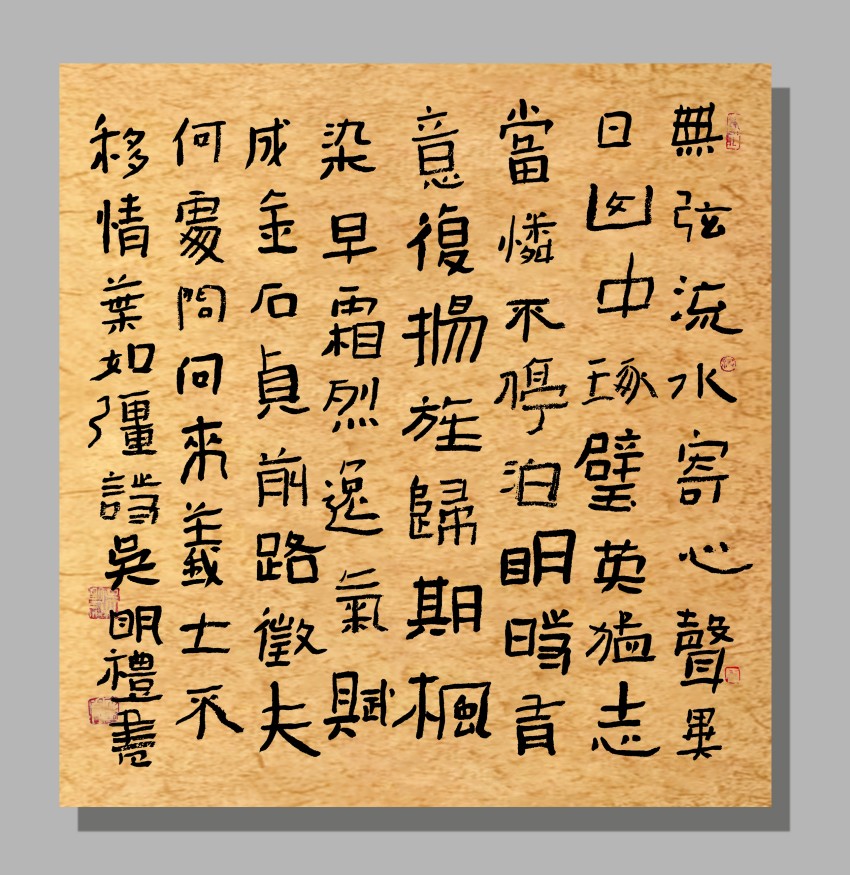 無弦流水寄心聲畢
日中琢璧英猛志
當憐不停泊明時肯
意復揚旌歸期楓
染早霜烈逸氣賦
成金石貞前路徵夫
何處問向來義士不
移情葉如彊詩吳明禮書